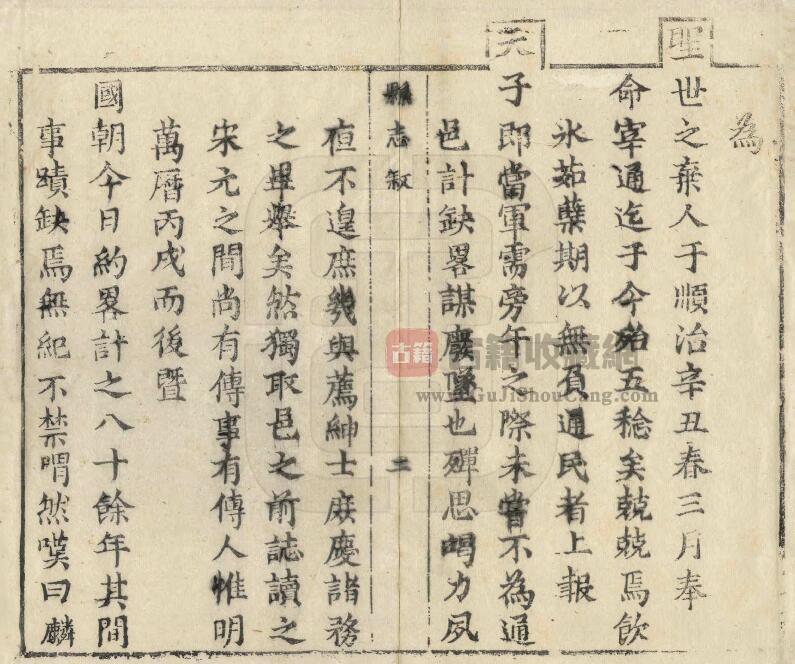 為
聖世之棄人于順治辛丑春三月奉
命宰通迄于今殆五稔矣兢兢焉飲
氷茹蘗期以無負通民者上報
天子即當軍需旁午之際未嘗不為通
邑計缺畧謀廢墜也殫思竭力夙
縣志叙 二
夜不遑庶幾與薦紳士庶慶諸務
之畢舉矣然獨取邑之前誌讀之
宋元之間尚有傳事有傳人惟明
萬曆丙戌而後暨
國朝今日約畧計之八十餘年其間
事蹟缺焉無紀不禁喟然嘆曰麟
古籍
古籍收藏網
www.GuJiShouCang.com